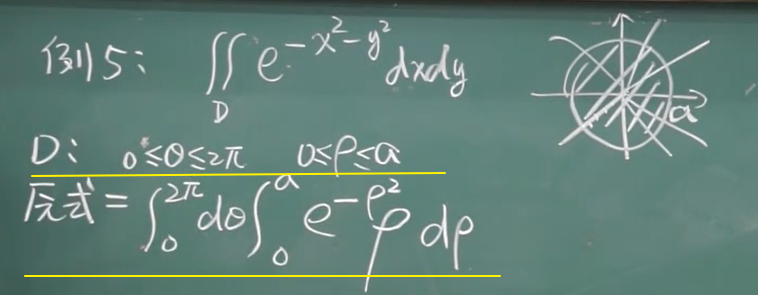 例5: ∬_D e^{-x²-y²} dxdy
a
D: 0≤θ≤2π 0≤ρ≤a
原式 = ∫_0^{2π} dθ ∫_0^a e^{-ρ²} ρ dρ